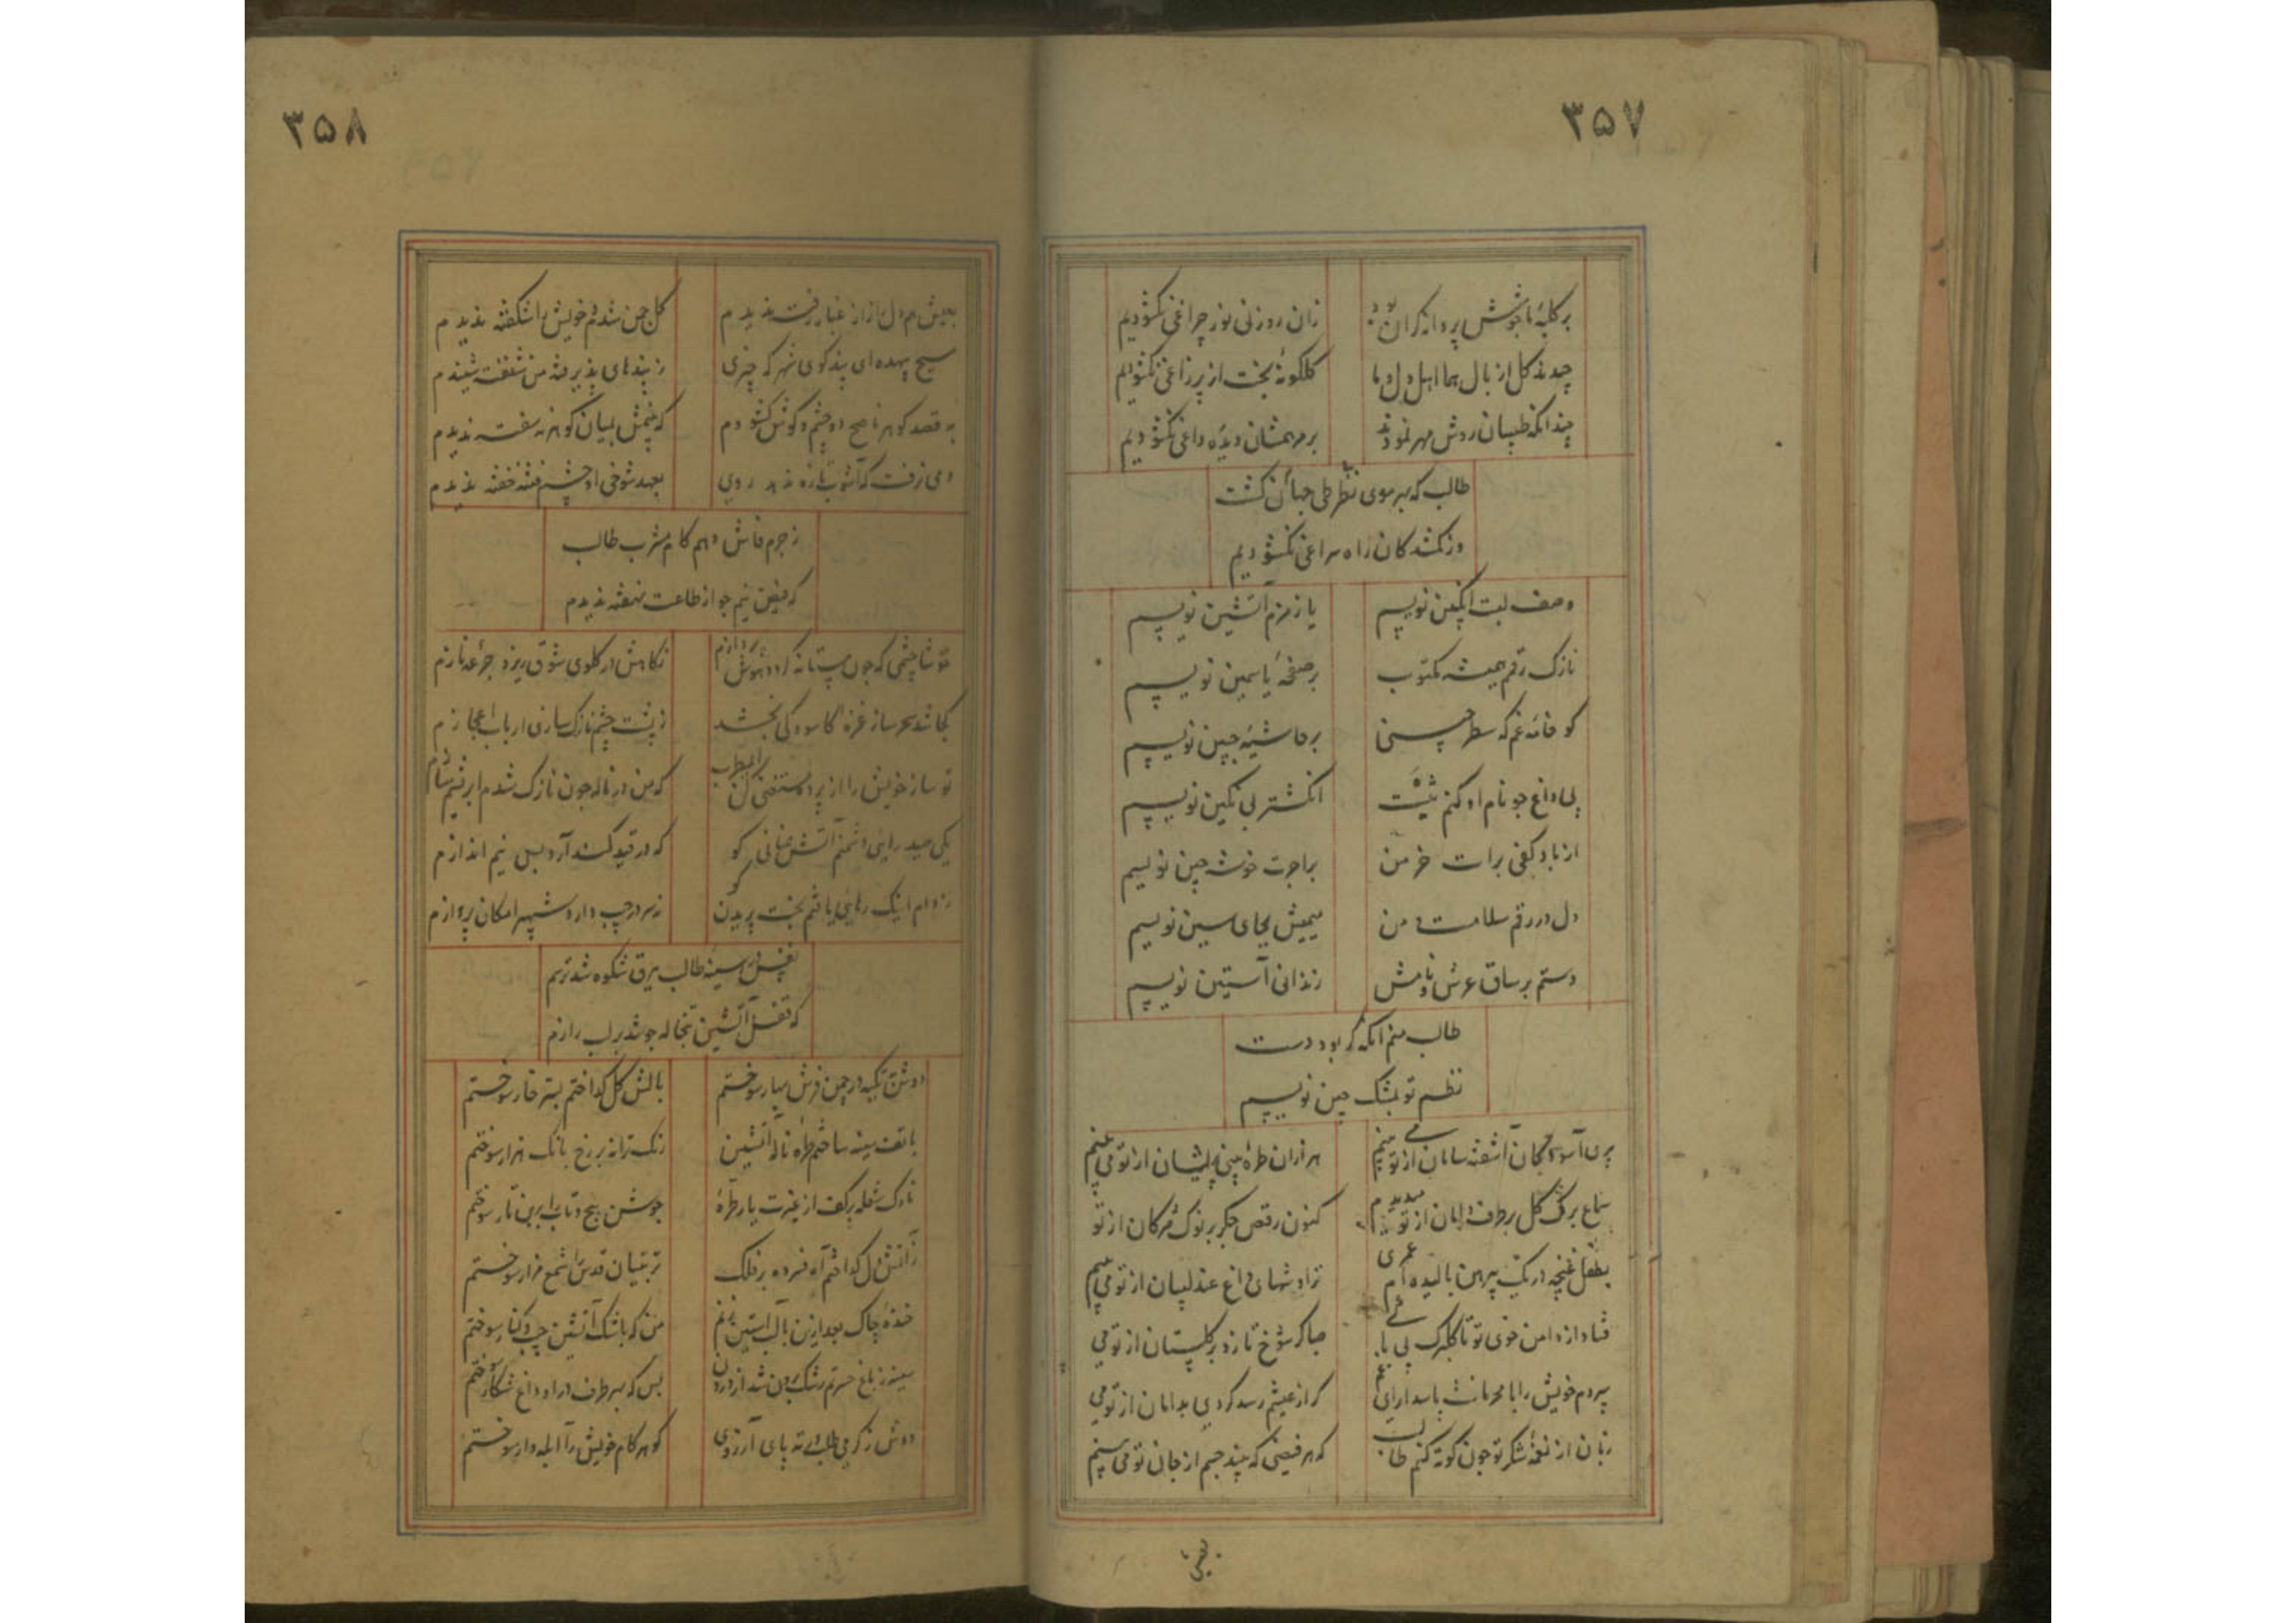 ۳۵۷
بر کلبهٔ ما جوش پروانه گران بود
زان روزنی نور چراغی نگشودیم
چیدند گل از بال هما اهل دل و ما
گلگونهٔ بخت از پر زاغی نگشودیم
چندانکه طبیبان روش مهر نمودند
بر مرهمشان دیدهٔ داغی نگشودیم
طالب که بهر موی نظر طی جهان گشت
وز گمشدگان راه سراغی نگشودیم
وصف لبت انگبین نویسم
یا زمزم آتشین نویسم
نازک رقم همیشه مکتوب
بر صفحهٔ یاسمین نویسم
کو خامه غم که سطر چینی
بر حاشیهٔ جبین نویسم
بی داغ چو نام او کنم ثبت
انگشتر بی نگین نویسم
از باد کفی برات خرمن
بر اجرت خوشه چین نویسم
دل در رقم سلامت من
میمیش بجای سین نویسم
دستم بر ساق عرش و نامش
زندانی آستین نویسم
طالب منم آنکه گر بود دست
نظم تو بمشک چین نویسم
پری آسودگان آشفته سامان از تو می بینم
هزاران طرهٔ بینی پریشان از تو می بینم
سماع برگ گل بر طرف دامان از تو میدیدم
کنون رقص جگر بر نوک مژگان از تو
بطفل غنچه در یک پیرهن بالیده ام عمری
تراوشهای داغ عندلیبان از تو می بینم
فتاد از دامن خوی تو تا گلبرگ بی
صبا گر شوخ تازد بر گلستان از تو می
سپردم خویش را با محرمانت پاسدارای غم
گر از عیشم رسد گردی بدامان از تو می
زبان از نغمهٔ شکر تو چون کوته کنم طالب
که هر فیضی که بیند جسم از جان تو می بینم
۳۵۸
بعیش هم دل از غبار رفت ندیدم
گل چمن شدم و خویش را شکفته ندیدم
مسیح بیهده ای پندگوی شهر که چیزی
ز پندهای پذیرفته من شنفته ندیدم
به قصد گوهر ناصح دو چشم و گوش گشودم
که بنمش بمیان گوهر نسفته ندیدم
دمی نرفت که آشوب تازه ندید روی
بعهد شوخی او چشم فتنه خفته ندیدم
ز جرم فاش دهم کام مشرب طالب
که فیض نیم جو از طاعت نهفته ندیدم
خوشا چشمی که چون مستانه گردد هوش پردازم
ز کاوش در گلوی شوق ریزد جرعهٔ نازم
کجا شد سحر ساز غمزه کاسودگی بخشد
ز پشت چشم نازک سازی ارباب اعجازم
تو ساز خویش را از پرده مستغنی کن ای مطرب
که من در ناله چون نازک شدم ابریشم سازم
یکی صید رایی دشمنم آتش عنانی کو
که در قید کمند آرد بس نیم اندازم
ز دام اینک رهایی یافتم بخت پریدن کو
ز سر در جیب دارد شهپر امکان پروازم
نفس در سینهٔ طالب برق شکوه شد ترسم
که قفل آتشین تبخاله جوشد بر لب رازم
دوش تکیه در چمن فرش بهار سوختم
بالش گل گداختم بستر خار سوختم
با تف سینه ساختم طره ناله آتشین
رنگ ترانه بر رخ بانگ هزار سوختم
ناوک شعله بر کف از غیرت یار طرهٔ
جوشن پیچ و تاب را بر تن تار سوختم
ز آتش دل گداختم آه فسرده بر فلک
تربتیان قدس را شمع مزار سوختم
خنده چاک بعد ازین بالب آستین زنم
من که باشک آتشین جیب و کنار سوختم
سینه ز باغ حسرتم رشک برون شد از درون
بس که بهر طرف در او داغ شکار سوختم
دوش ز گرمی طلب در ته پای آرزوی
گوهر کام خویش را آبله وار سوختم